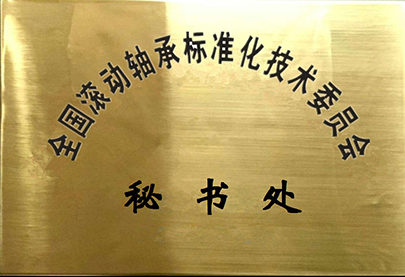 全国滚动轴承标准化技术委员会
秘书处